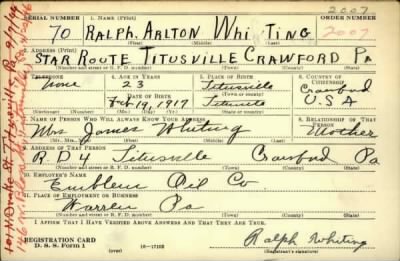 SERIAL NUMBER 1. NAME (Print) ORDER NUMBER
2007
70 RALPH. ARLTON WHITING 2007
(First) (Middle) (Last)
2. ADDRESS (Print)
STAR ROUTE TITUSVILLE CRAWFORD PA
(Number and street or R. F. D. number) (Town) (County) (State)
3. TELEPHONE 4. AGE IN YEARS 5. PLACE OF BIRTH 6. COUNTRY OF CITIZENSHIP
None 23 Titusville Crawford
DATE OF BIRTH
Feb 19, 1917 Titusville U.S.A
(Exchange) (Number) (Mo.) (Day) (Yr.) (Town or county) (State or country)
7. NAME OF PERSON WHO WILL ALWAYS KNOW YOUR ADDRESS 8. RELATIONSHIP OF THAT PERSON
Mrs James Whiting Mother
(Mr., Mrs., Miss) (First) (Middle) (Last)
9. ADDRESS OF THAT PERSON
R D 4 Titusville Crawford Pa
(Number and street or R. F. D. number) (Town) (County) (State)
10. EMPLOYER'S NAME
Emblem Oil Co
11. PLACE OF EMPLOYMENT OR BUSINESS
Warren Pa
(Number and street or R. F. D. number) (Town) (County) (State)
I AFFIRM THAT I HAVE VERIFIED ABOVE ANSWERS AND THAT THEY ARE TRUE.
REGISTRATION CARD
D. S. S. Form 1 (over) 16-17105 Ralph Whiting